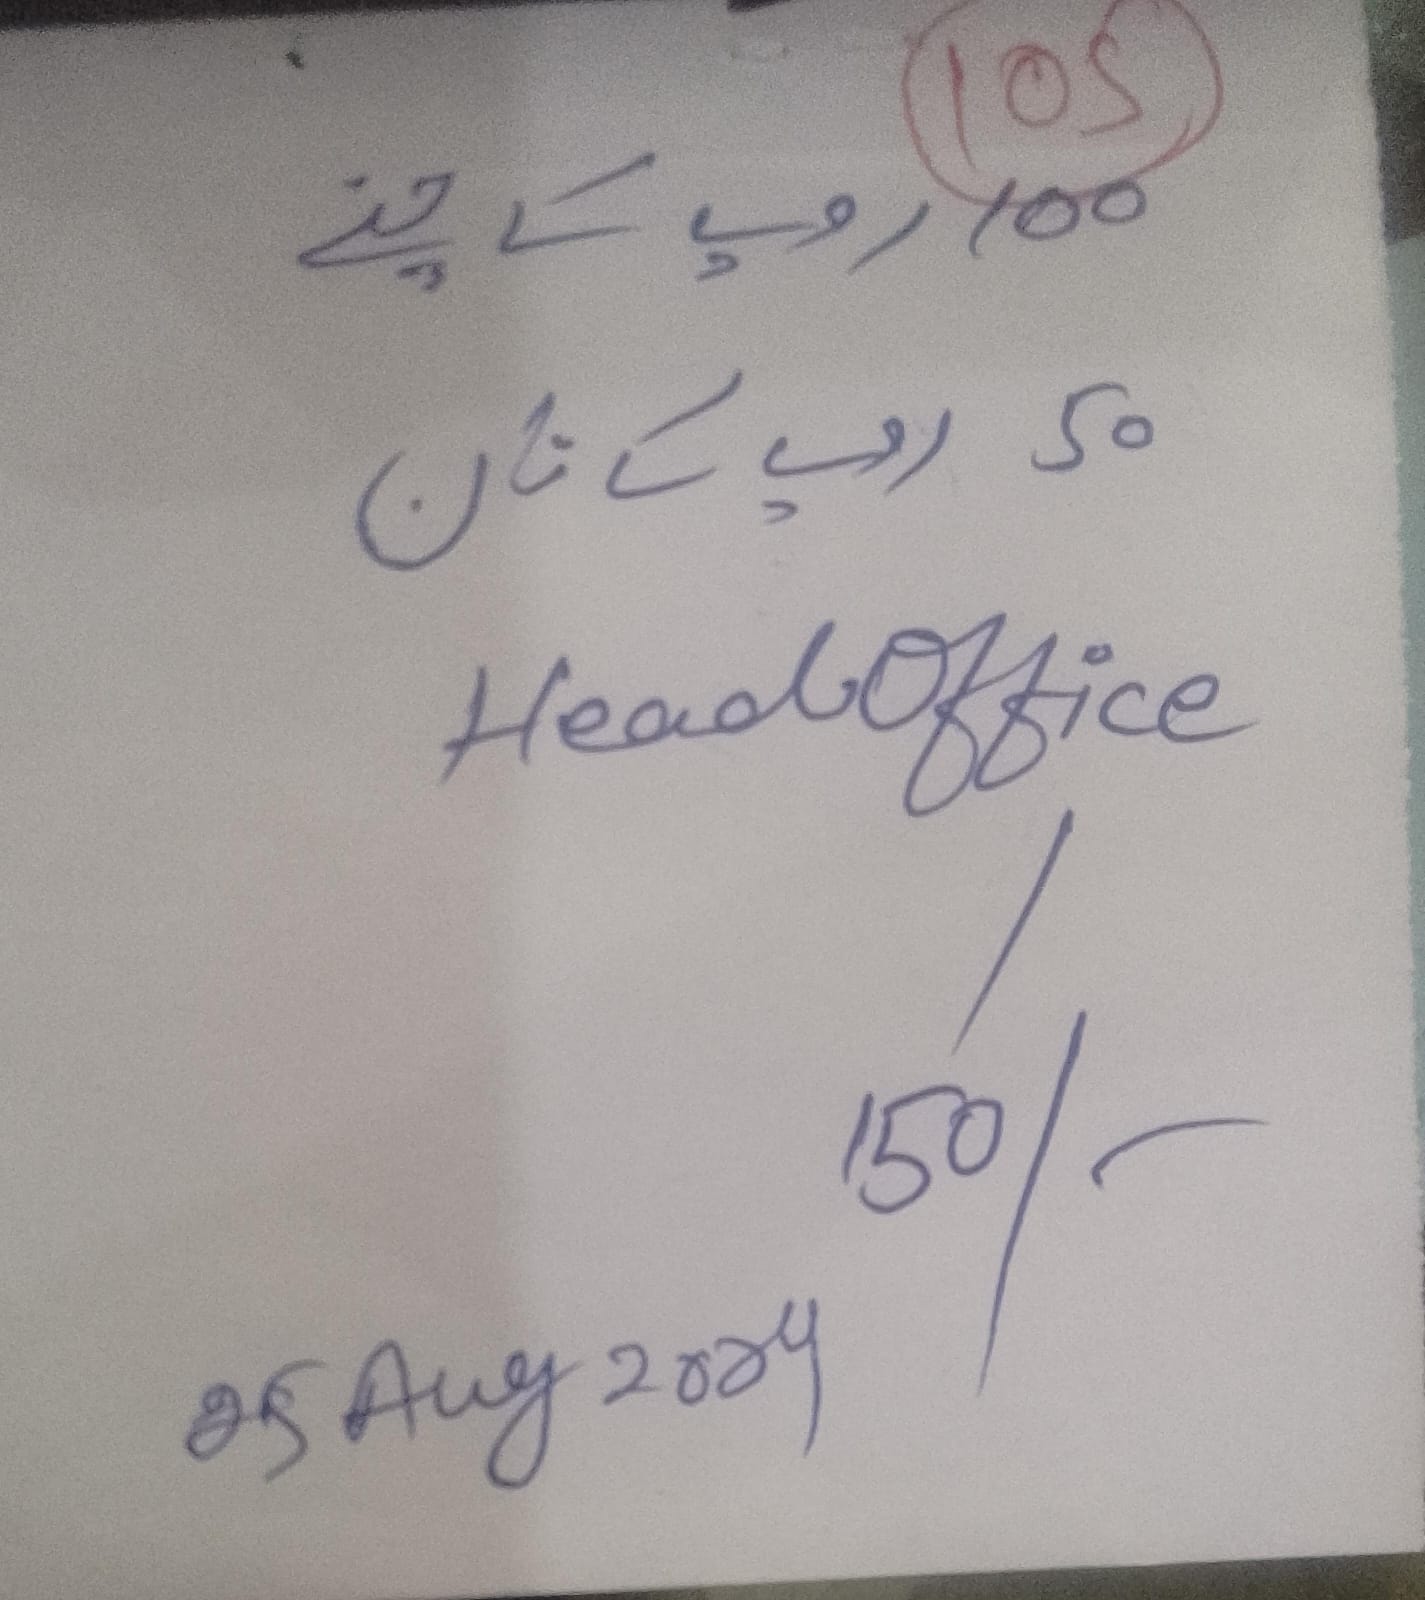 105
100 روپے کے چنے
50 روپے کے نان
Head Office
150/-
25 Aug 2024